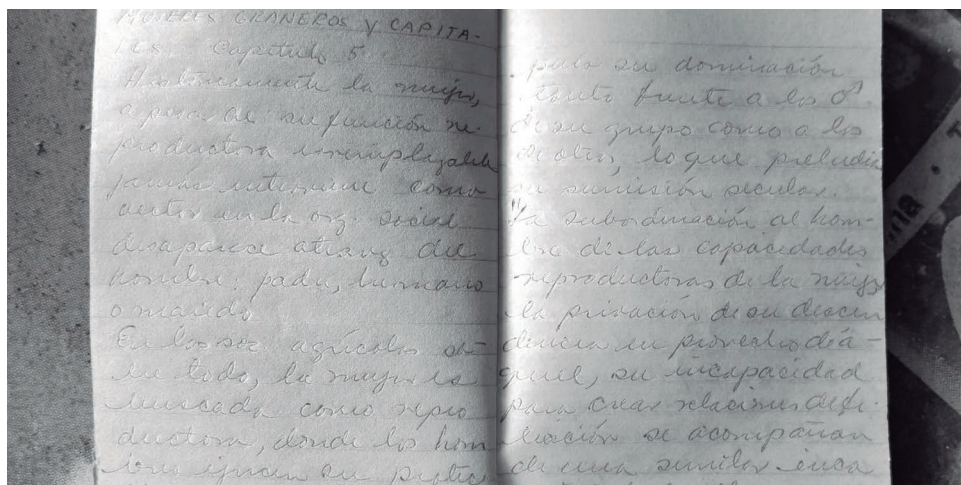 MUJERES GRANEROS Y CAPITA-
LES. Capítulo 5.
Historicamente la mujer,
a pesar de su función re-
productora irremplazable
jamás interviene como
vector en la org. social
desaparece atraves del
hombre: padre, hermano
o marido
En las soc agrícolas so-
bre todo, la mujer es
buscada como repro
ductora, donde los hom
bres ejercen su protec
. para su dominación
. tanto frente a los ♂.
de su grupo como a los
de otros, lo que preludia
su sumisión secular.
"La subordinación al hom-
bre de las capacidades
reproductoras de la mujer
la privación de su descen
dencia en provecho de a-
quel, su incapacidad
para crear relaciones de fi-
liación se acompañan
de una similar inca